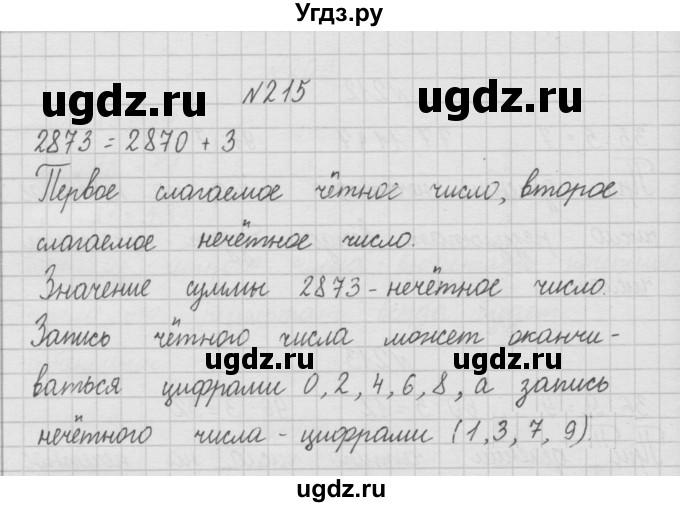 Угдз.ру
ugdz.ru №215 ugdz.ru
2873 = 2870 + 3
Первое слагаемое чётное число, второе
слагаемое нечётное число.
Значение суммы 2873 - нечётное число.
Запись чётного числа может оканчи-
ugdz.ru ugdz.ru
ваться цифрами 0, 2, 4, 6, 8, а запись
нечётного числа - цифрами (1, 3, 7, 9).
ugdz.ru